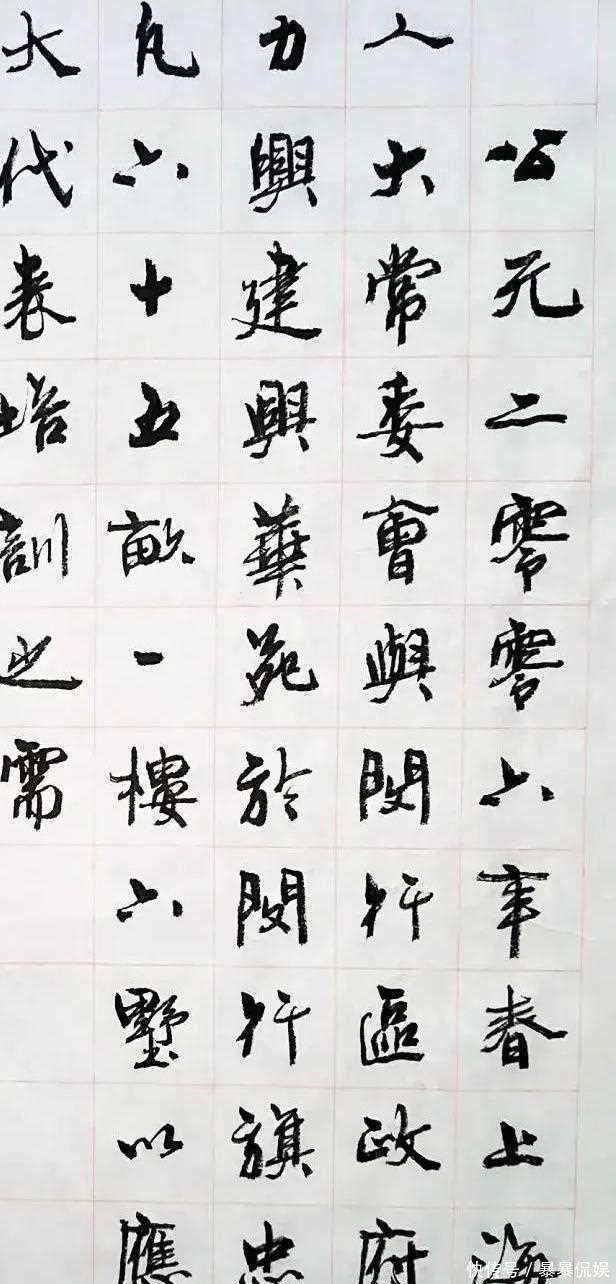 公元二零零六年春上海
人大常委會與閔行區政府
力興建興華苑於閔行旗忠
凡六十五畝一樓六墅以應
大代表培訓之需
快传号/暴暴侃娱